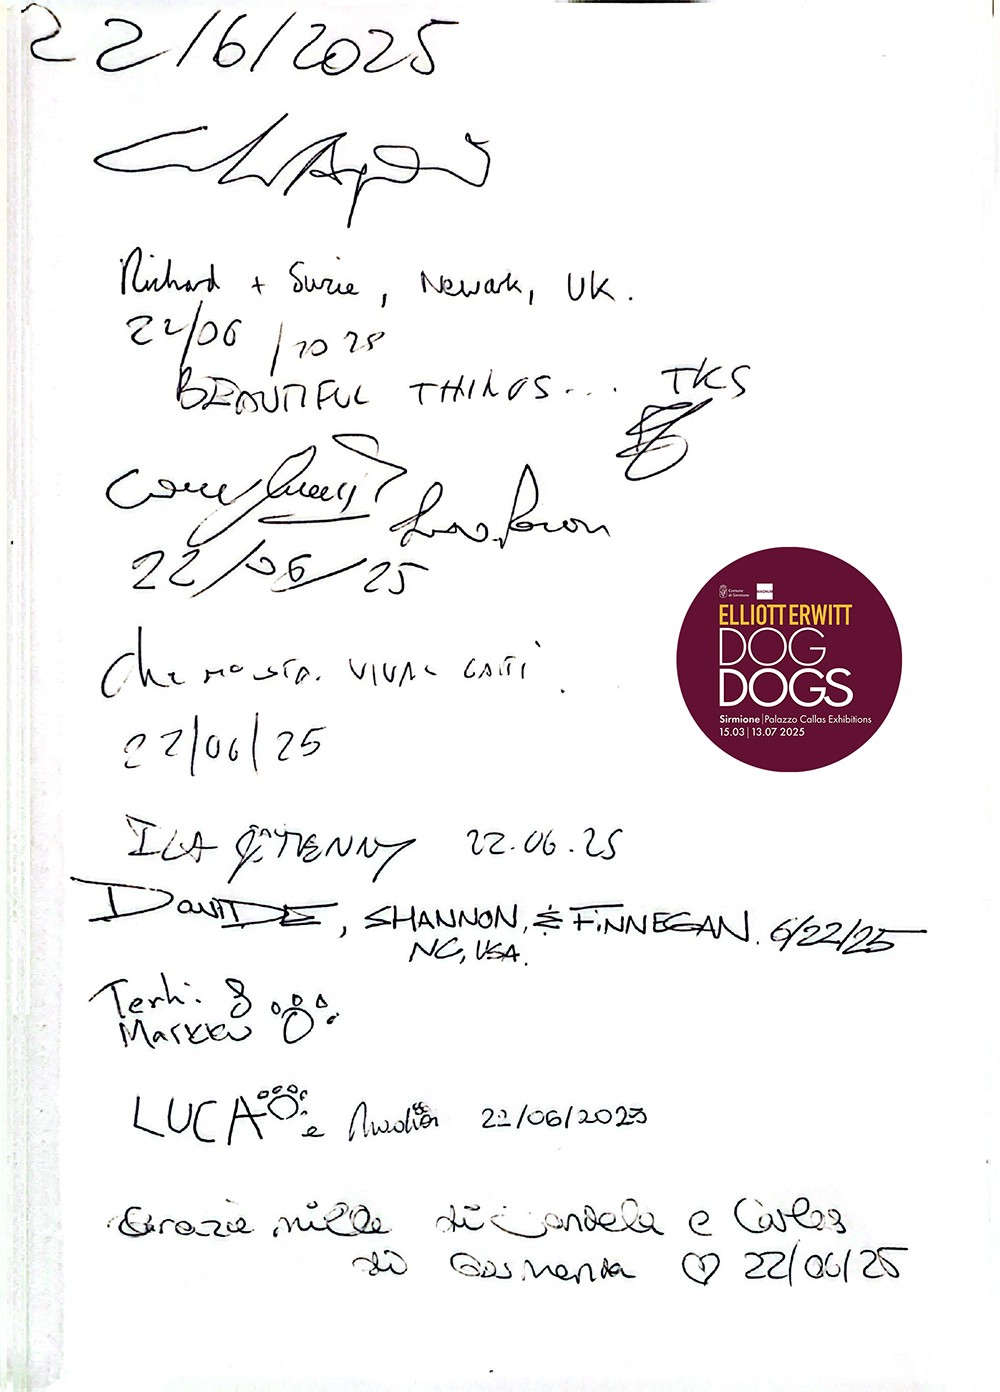 22/6/2025
Richard + Suzie, Newark, UK.
22/06/2025
BEAUTIFUL THINGS... TKS
22/06/25
Che mostra. VIVA I GATTI.
22/06/25
22.06.25
DAVIDE, SHANNON, & FINNEGAN. 6/22/25
NC, USA.
Terhi &
Markku
LUCA e 22/06/2025
Grazie mille di Candela e Carlos
di 22/06/25
Comune
di Sirmione
MAGNUM
ELLIOTT ERWITT
DOG
DOGS
Sirmione | Palazzo Callas Exhibitions
15.03 | 13.07 2025